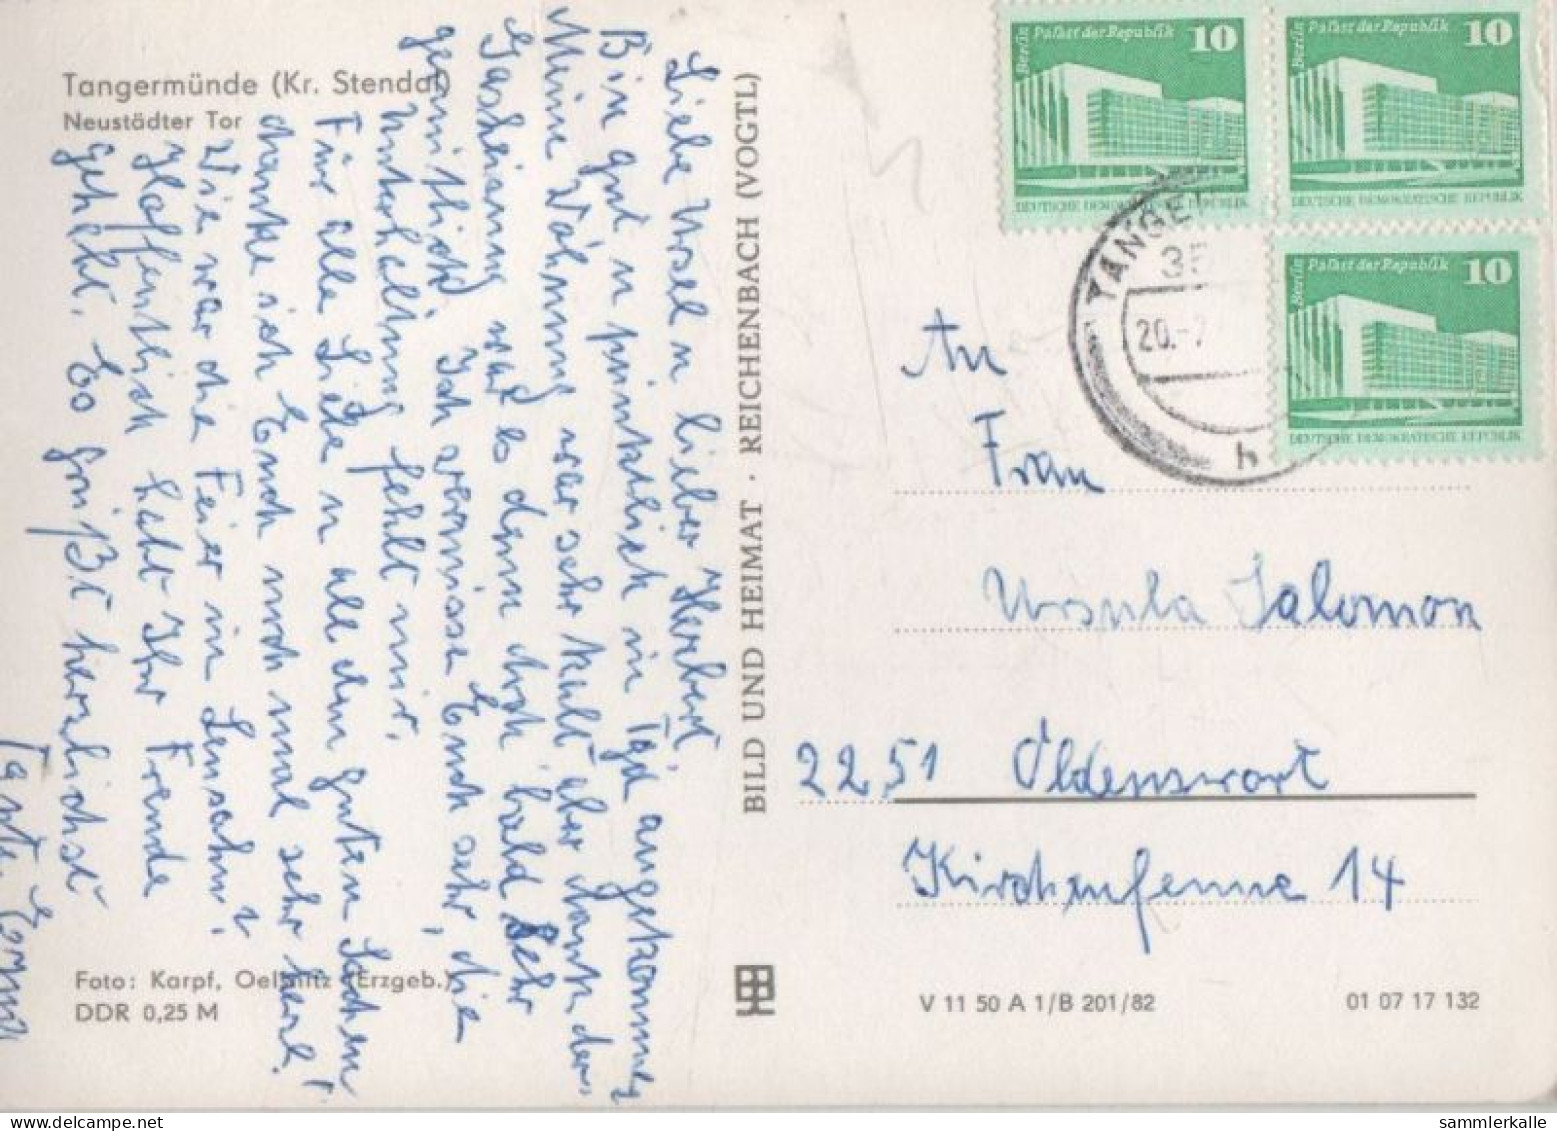 Tangermünde (Kr. Stendal)
Neustädter Tor
Liebe Ursel u lieber Herbert,
Bin gut u pünktlich in Tgd angekommen
Meine Wohnung war sehr kühl aber dank der
Gasheizung war es dann doch bald sehr
gemütlich. Ich vermisse Euch sehr, die
Unterhaltung fehlt mir.
Für alle Liebe u all den guten Sachen
danke ich Euch noch mal sehr herzl!
Wie war die Feier in Lensahn?
Hoffentlich habt Ihr Freude
gehabt. Es grüßt herzlichst
Tante Erna
Foto: Karpf, Oelsnitz (Erzgeb.)
DDR 0,25 M
BILD UND HEIMAT · REICHENBACH (VOGTL)
Berlin Palast der Republik 10
DEUTSCHE DEMOKRATISCHE REPUBLIK
Berlin Palast der Republik 10
DEUTSCHE DEMOKRATISCHE REPUBLIK
Berlin Palast der Republik 10
DEUTSCHE DEMOKRATISCHE REPUBLIK
TANGE
35
20.-7
h
An
Frau
Ursula Salomon
2251 Oldenswort
Kirchenfenne 14
V 11 50 A 1/B 201/82
01 07 17 132
sammlerkalle